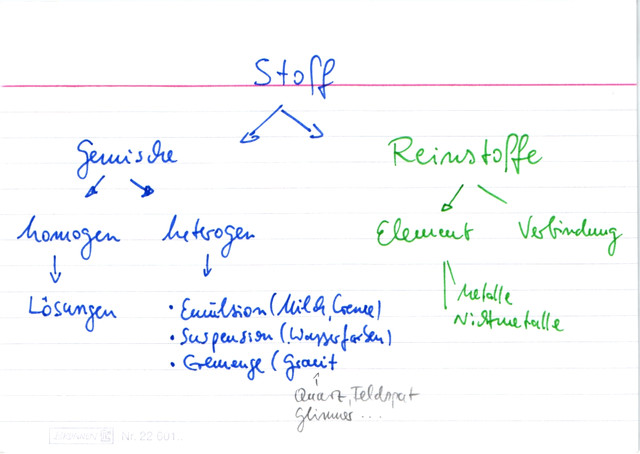 Stoff
Gemische
Reinstoffe
homogen heterogen
Element Verbindung
Lösungen
• Emulsion (Milch, Creme)
• Suspension (Wasserfarben)
• Gemenge (Granit
Metalle
Nichtmetalle
Quarz, Feldspat
Glimmer ...
Nr. 22 601..